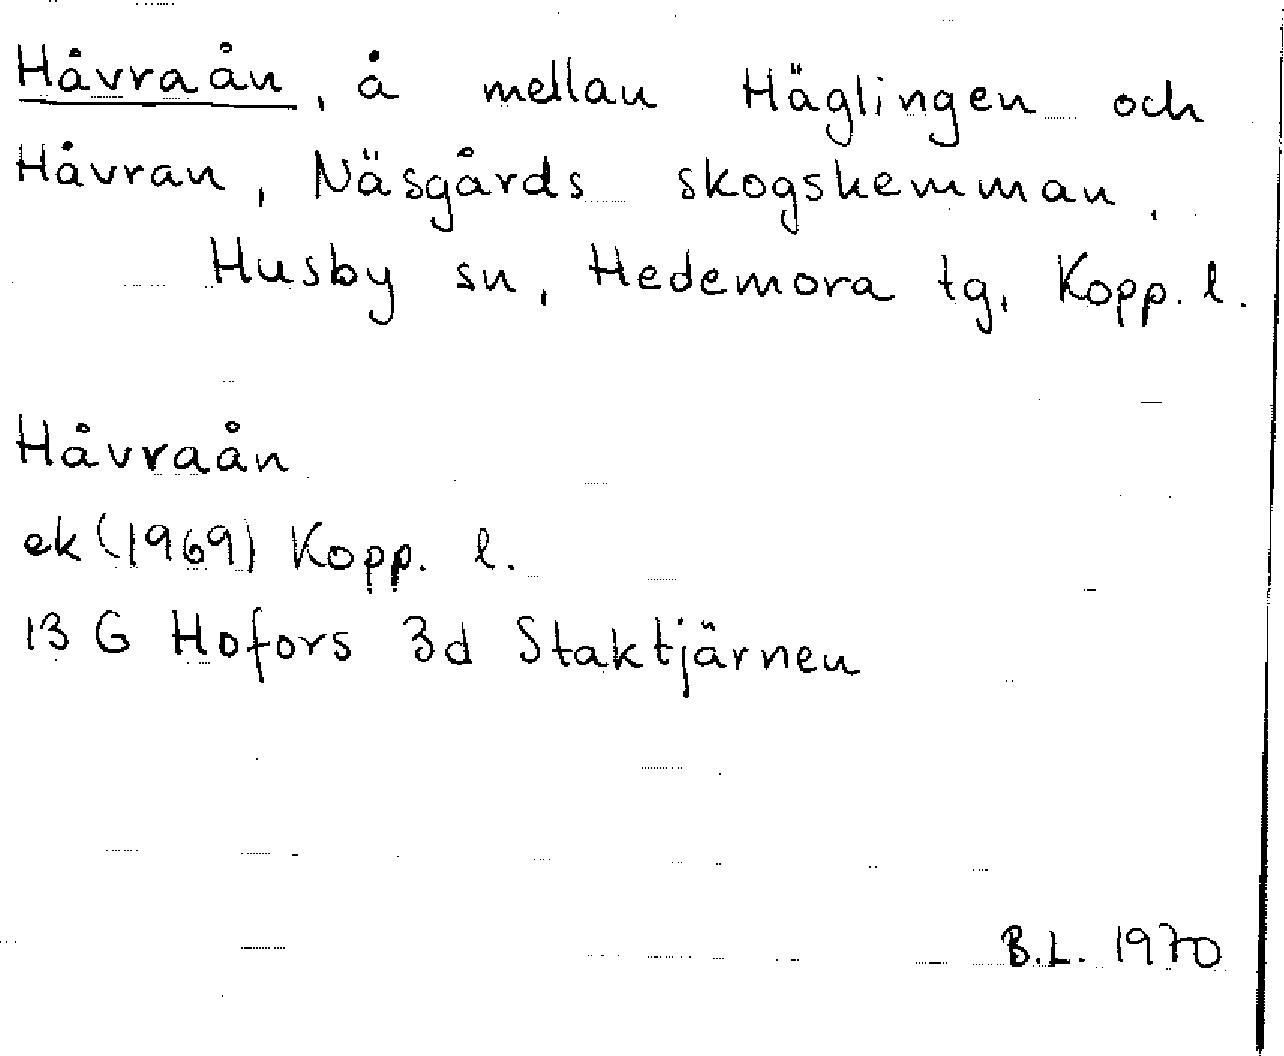 Håvraån, å mellan Häglingen och
Håvran, Näsgårds skogshemman,
Husby sn, Hedemora tg, Kopp. l.
Håvraån
ek (1969) Kopp. l.
13 G Hofors 3d Staktjärnen
B.L. 1970